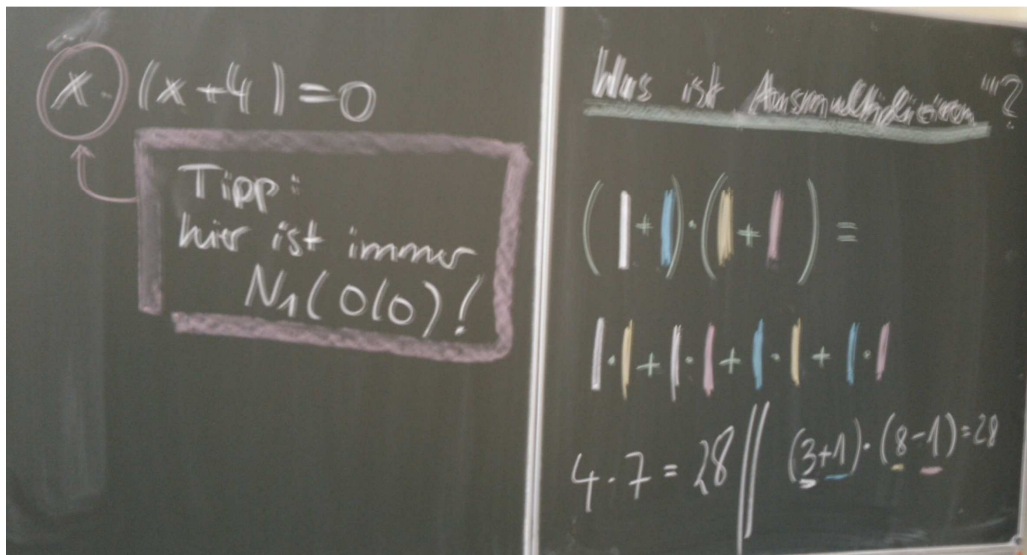 x · (x+4) = 0
Tipp:
hier ist immer
N₁(0|0)!
Was ist Ausmultiplizieren"?
( | + | ) · ( | + | ) =
| · | + | · | + | · | + | · |
4 · 7 = 28 || (3+1) · (8-1) = 28